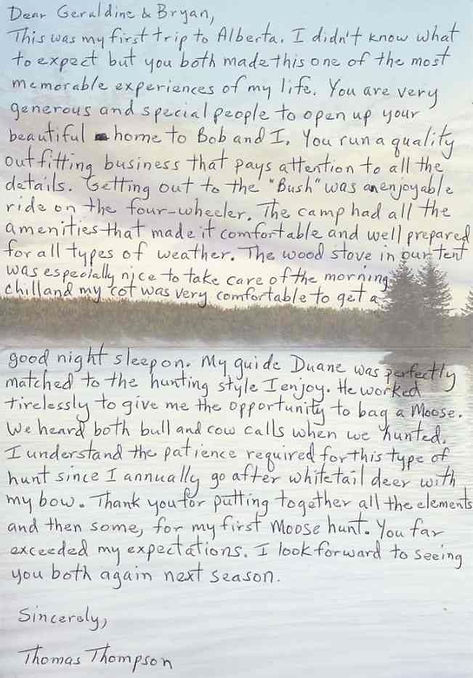 Dear Geraldine & Bryan,
This was my first trip to Alberta. I didn't know what
to expect but you both made this one of the most
memorable experiences of my life. You are very
generous and special people to open up your
beautiful home to Bob and I. You run a quality
outfitting business that pays attention to all the
details. Getting out to the "Bush" was an enjoyable
ride on the four-wheeler. The camp had all the
amenities that made it comfortable and well prepared
for all types of weather. The wood stove in our tent
was especially nice to take care of the morning
chill and my cot was very comfortable to get a
good night sleep on. My guide Duane was perfectly
matched to the hunting style I enjoy. He worked
tirelessly to give me the opportunity to bag a Moose.
We heard both bull and cow calls when we hunted.
I understand the patience required for this type of
hunt since I annually go after whitetail deer with
my bow. Thank you for putting together all the elements
and then some, for my first Moose hunt. You far
exceeded my expectations. I look forward to seeing
you both again next season.
Sincerely,
Thomas Thompson